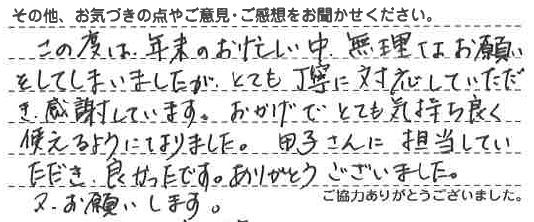 その他、お気づきの点やご意見・ご感想をお聞かせください。
この度は、年末のお忙しい中、無理なお願い
をしてしまいましたが、とても丁寧に対応していただ
き、感謝しています。おかげでとても気持ち良く
使えるようになりました。 甲子さんに 担当してい
ただき、良かったです。ありがとうございました。
又、お願いします。
ご協力ありがとうございました。